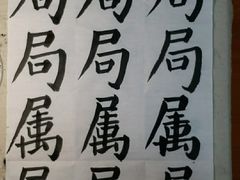 局局局
局局局
属属属